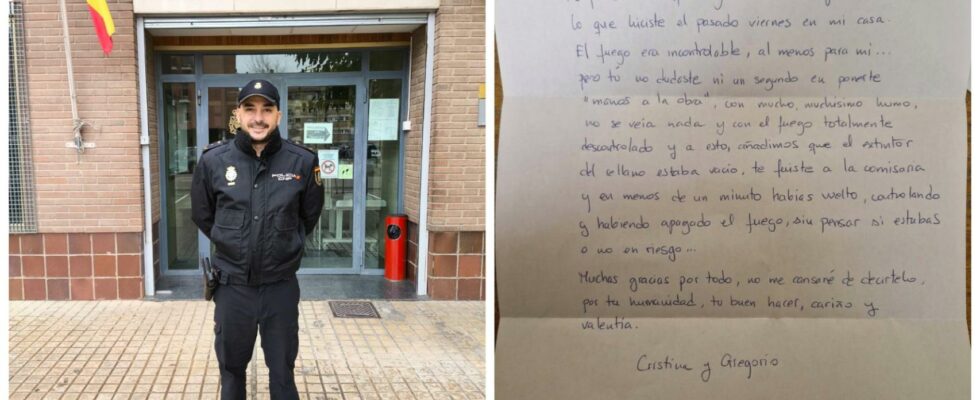 POLICIA
CNP
lo que hiciste el pasado viernes en mi casa.
El fuego era incontrolable, al menos para mi...
pero tú no dudaste ni un segundo en ponerte
"manos a la obra", con mucho, muchísimo humo,
no se veia nada y con el fuego totalmente
descontrolado y a esto, añadimos que el extintor
del rellano estaba vacio, te fuiste a la comisaria
y en menos de un minuto habias vuelto, controlando
y habiendo apagado el fuego, sin pensar si estabas
o no en riesgo...
Muchas gracias por todo, no me cansaré de decirtelo,
por tu humanidad, tu buen hacer, cariño y
valentía.
Cristina y Gregorio